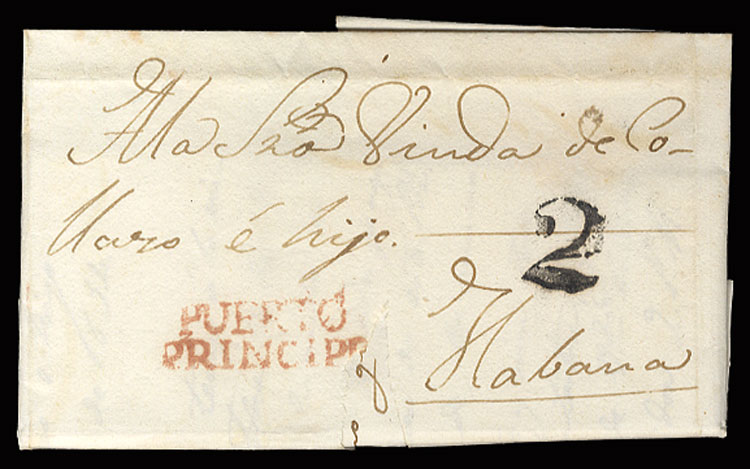 A la Sra Viuda de Co-
llazo é hijo.
2
PUERTO
PRINCIPE
Habana